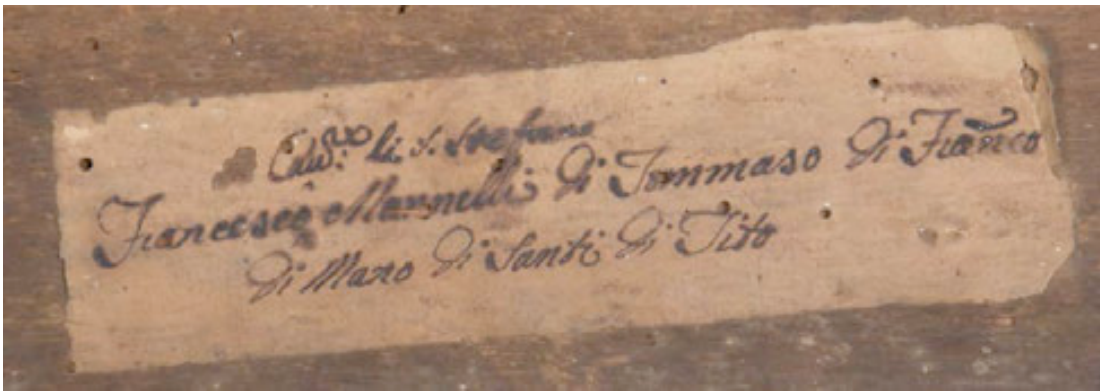 Cav.re di S. Stefano
Francesco Mannelli di Tommaso di Fran.co
di Mano di Santi di Tito